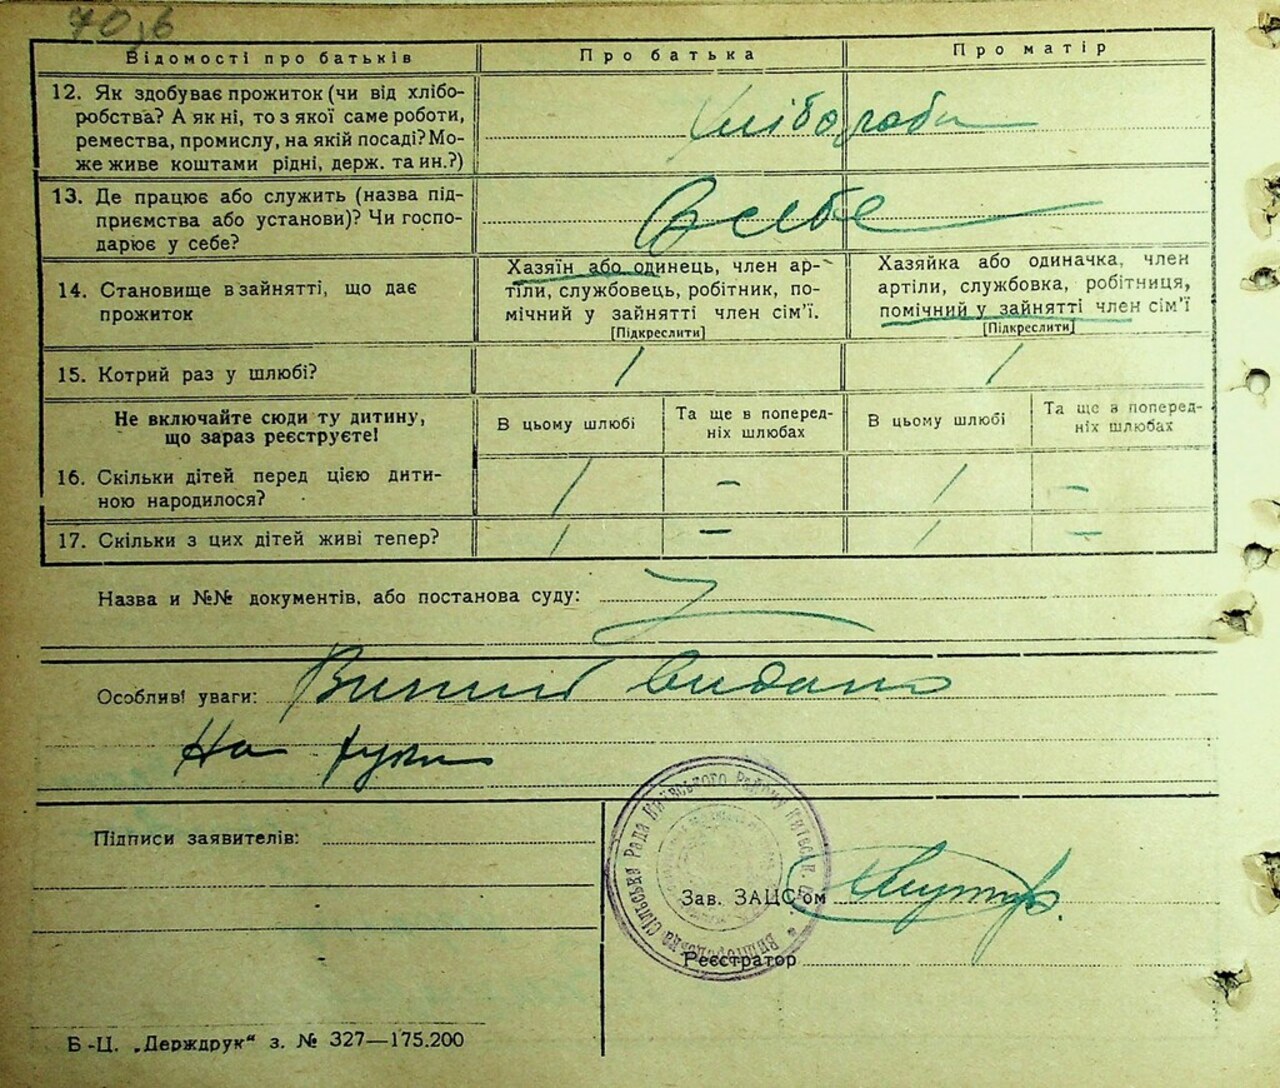 70,6
Відомості про батьків
Про батька
Про матір
12. Як здобуває прожиток (чи від хлібо-
робства? А як ні, то з якої саме роботи,
ремества, промислу, на якій посаді? Мо-
же живе коштами рідні, держ. та ин.?)
Хлібороби
13. Де працює або служить (назва під-
приємства або установи)? Чи госпо-
дарює у себе?
В себе
14. Становище в зайнятті, що дає
прожиток
Хазяїн або одинець, член ар-
тіли, службовець, робітник, по-
мічний у зайнятті член сім'ї.
[Підкреслити]
Хазяйка або одиначка, член
артіли, службовка, робітниця,
помічний у зайнятті член сім'ї
[Підкреслити]
15. Котрий раз у шлюбі?
1
1
Не включайте сюди ту дитину,
що зараз реєструєте!
В цьому шлюбі
Та ще в поперед-
ніх шлюбах
В цьому шлюбі
Та ще в поперед-
ніх шлюбах
16. Скільки дітей перед цією дити-
ною народилося?
1 – 1 –
17. Скільки з цих дітей живі тепер?
1 – 1 –
Назва и №№ документів, або постанова суду:
Особливі уваги: Випис видано
На руки
Підписи заявителів:
Вишгородська Сільська Рада Київського Району Київськ.
Зав. ЗАЦС'ом
Реєстратор
Б-Ц. „Держдрук“ з. № 327—175.200